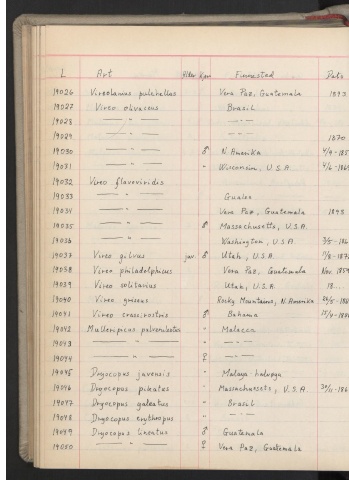 L Art Alder Kjøn Findested Dato
19026 Vireolanius pulchellus Vera Paz, Guatemala 1893
19027 Vireo olivaceus Brasil
19028 — " — — " —
19029 — " — — " — 1870
19030 — " — ♂ N. Amerika
19031 — " — " Wisconsin, U.S.A.
19032 Vireo flavoviridis
19033 — " —
19034 — " — Vera Paz, Guatemala
19035 — " — ♂ Massachusetts, U.S.A.
19036 — " — " Washington, U.S.A.
19037 Vireo gilvus juv. ♂ Utah, U.S.A.
19038 Vireo philadelphicus " Vera Paz, Guatemala Nov.
19039 Vireo solitarius Utah, U.S.A. 18....
19040 Vireo griseus Rocky Mountains, N. Amerika
19041 Vireo crassirostris ♂ Bahama
19042 Mulleripicus pulverulentus " Malacca
19043 — " — " — " —
19044 — " — ♀ — " —
19045 Dryocopus javensis " Malaya
19046 Dryocopus pileatus " Massachusetts, U.S.A.
19047 Dryocopus galeatus " Brasil
19048 Dryocopus erythropus " — " —
19049 Dryocopus lineatus ♂ Guatemala
19050 — " — ♀ Vera Paz, Guatemala